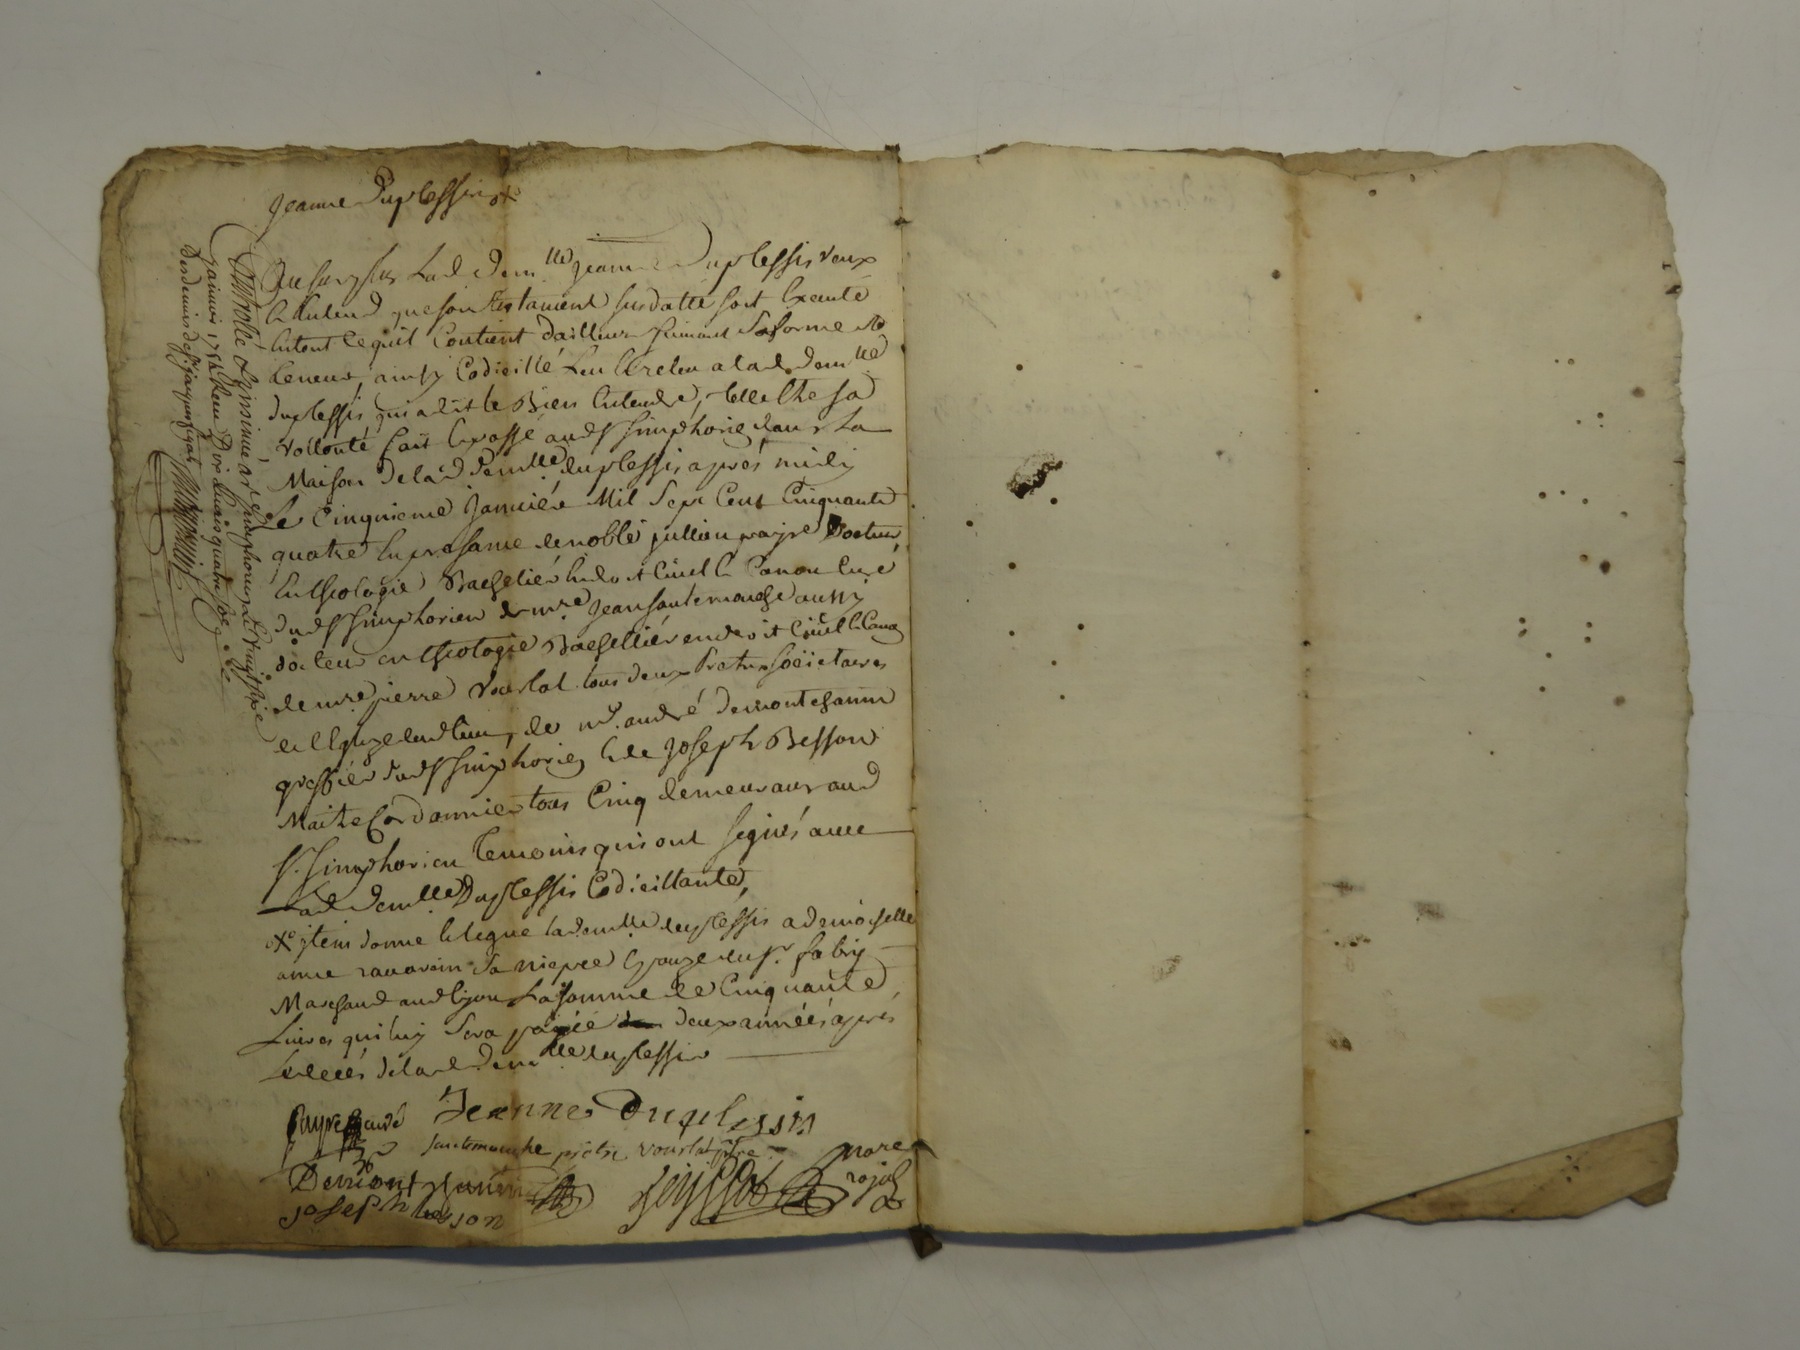 Jeanne Duplessis
Au surplus Lad. Dem.lle Jeanne Duplessis veux
& Entend que son Testament susdatté soit Exeuté
Entout cequil Contient dailleurs suivant Saforme &
teneur, ainsy Codicillé Leu & releu a lad. Dem.lle
duplessis, qui a dit le Bien Entendre, & telle Etre sa
vollonté fait & passé aud. St simphorien dans La
Maison delad. demlle duplessis après midy
Le Cinquieme Janvier Mil Sept Cent Cinquante
quatre En presance de noble jullien payre Docteur
En theologie Bachelié en droit Civil & Canon Curé
dud. St simphorien de mre Jean sautemouche aussy
docteur en theologie Bachellié en droit Civil & Canon
de mre pierre vourlat tous deux Pretres sociétaires
en Eglize dud. lieu, de mr. andré demontchanin
greffier dud. St simphorien & de Joseph Besson
Maitre Cordonnier tous Cinq demeurans aud.
St. Simphorien temoins qui ont signés avec
Lad. Demlle Duplessis Codicillante,
jtem donne & legue lad. demlle duplessis a demoiselle
anne ravarein sa niepce Epouze du sr. fabry
Marchand aud. lyon La somme de Cinquante
Livres qui luy Sera payée deux années après
Le decés de lad. Dem.lle duplessis
payre curé Jeanne Duplessis
sautemouche prêtre vourlat ptre
Demontchanin
Joseph besson
Controllé & Insinué a St simphorien Le huit
janvier 1754 Receu